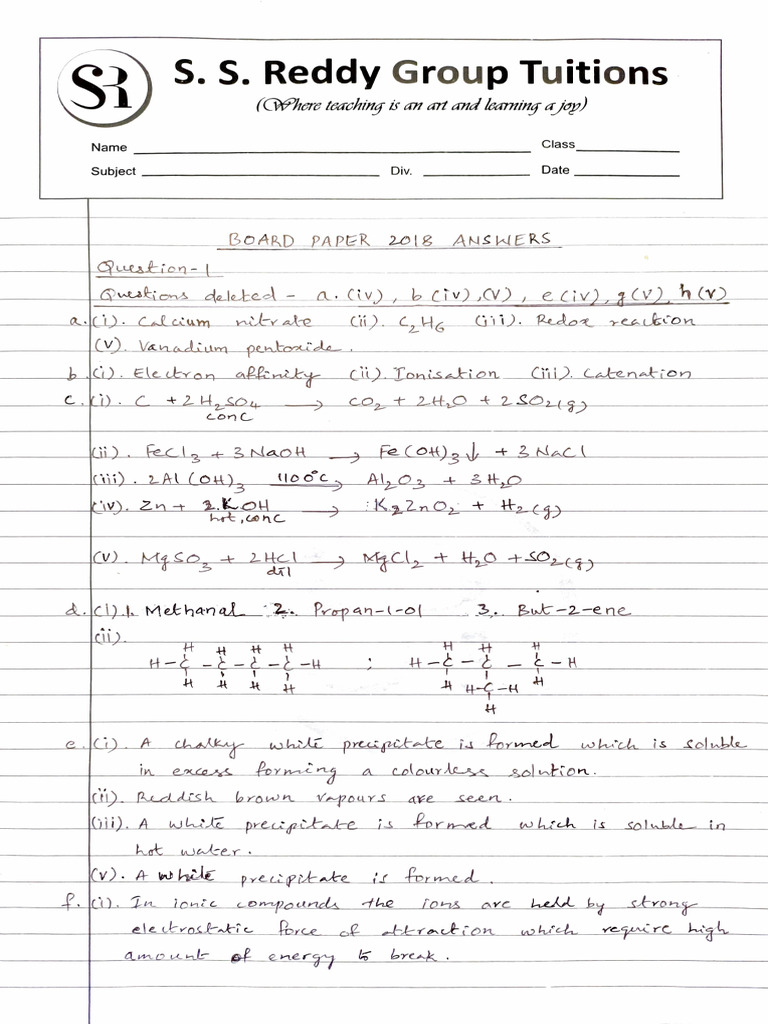 SR
S. S. Reddy Group Tuitions
(Where teaching is an art and learning a joy)
Name Class
Subject Div. Date
BOARD PAPER 2018 ANSWERS
Question-1
Questions deleted - a.(iv), b(iv),(v), e(iv), g(v), h(v)
a.(i). Calcium nitrate (ii). C2H6 (iii). Redox reaction
(v). Vanadium pentoxide.
b.(i). Electron affinity (ii). Ionisation (iii). Catenation
c.(i). C + 2H2SO4 → CO2 + 2H2O + 2SO2(g)
conc
(ii). FeCl3 + 3NaOH → Fe(OH)3↓ + 3NaCl
(iii). 2Al(OH)3 1100°C→ Al2O3 + 3H2O
(iv). Zn + 2KOH → K2ZnO2 + H2(g)
hot, conc
(v). MgSO3 + 2HCl → MgCl2 + H2O + SO2(g)
dil
d.(i) 1. Methanal 2. Propan-1-ol 3. But-2-ene
(ii).
H H H H ; H H H
H-C-C-C-C-H H-C-C-C-H
H H H H H H-C-H H
H
e.(i). A chalky white precipitate is formed which is soluble
in excess forming a colourless solution.
(ii). Reddish brown vapours are seen.
(iii). A white precipitate is formed which is soluble in
hot water.
(v). A white precipitate is formed.
f.(i). In ionic compounds the ions are held by strong
electrostatic force of attraction which require high
amount of energy to break.